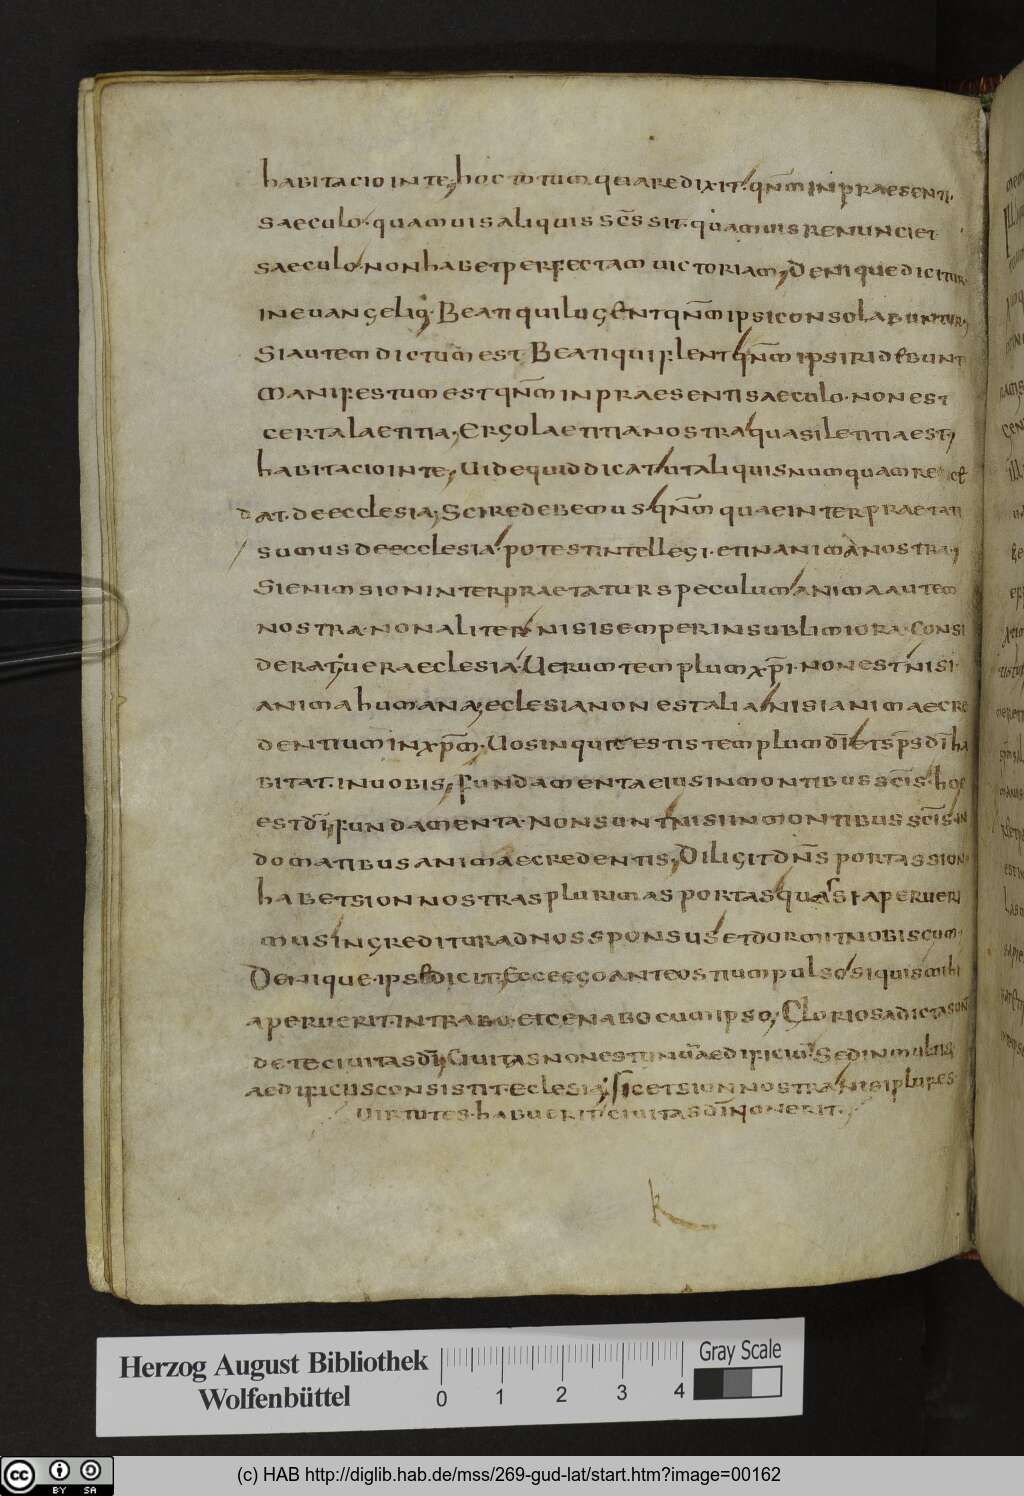 habitatio in te; hoc totum quare dixit. qnm in praesenti.
saeculo. quamuis aliquis scs sit. quamuis renunciet
saeculo. non habet perfectam uictoriam; Denique dicitur
in euangelio. Beati qui lugent qnm ipsi consolabuntur;
Si autem dictum est Beati qui flent qnm ipsi ridebunt
manifestum est qnm in praesenti saeculo. non est
certa laetitia; Ergo laetitia nostra quasi letitia est;
habitacio in te; Uide quid dicat ut aliquis numquam
dat. de ecclesia; Scire debemus qnm quae interpraetati
sumus de ecclesia. potest intellegi. et in anima nostra;
Si enim sion interpraetatur speculum anima autem
nostra. non aliter nisi semper in sublimiora. consi
derat; uera eclesia. Uerum templum xpi. non est nisi.
anima humana; eclesia non est alia nisi animae cre
dentium in xpm. Uos inquit estis templum di et sps di ha
bitat. in uobis; fundamenta eius in montibus scis. hoc
est di; fundamenta. non sunt nisi in montibus scis. in
domatibus animae credentis; Diligit dns portas sion.
habet sion nostras plurimas portas quas si aperueri
mus ingreditur ad nos sponsus et dormit nobiscum.
Denique. ipse dicit; Ecce ego ante ostium pulso si quis mihi
aperuerit. intrabo. et cenabo cum ipso; Gloriosa dicta sunt
de te ciuitas di; Ciuitas non est in una aedificiu. Sed in multis
aedificiis consistit. Eclesia; sic et sion nostra nisi plures
uirtutes. habuerit ciuitas di non erit.
k
Herzog August Bibliothek
Wolfenbüttel
0 1 2 3 4
Gray Scale
cc BY SA
(c) HAB http://diglib.hab.de/mss/269-gud-lat/start.htm?image=00162